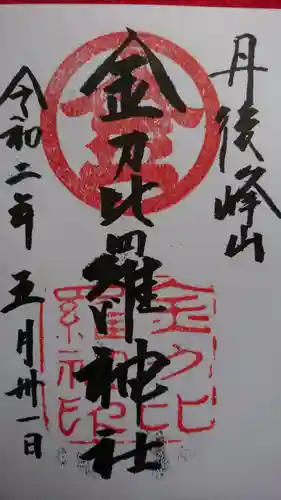 丹後峰山
金刀比羅神社
令和二年五月卅一日
金
金刀比
羅神
社印